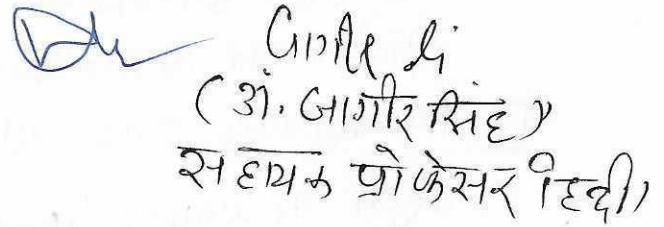 (डॉ. जागीर सिंह)
सहायक प्रोफेसर हिन्दी)